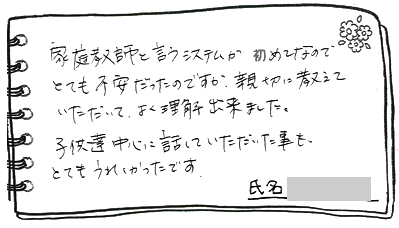 家庭教師と言うシステムが 初めてなので
とても不安だったのですが、親切に教えて
いただいて、よく理解出来ました。
子供達中心に話していただいた事も、
とてもうれしかったです。
氏名